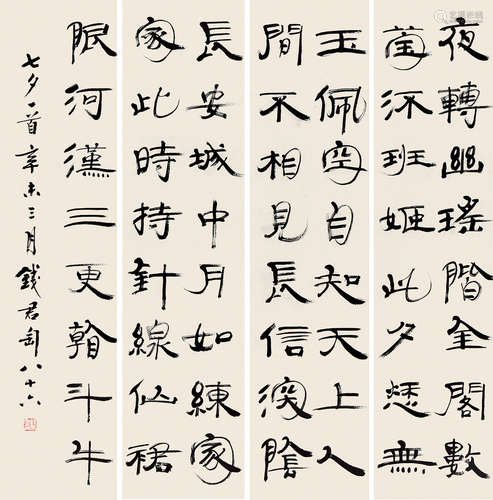 夜轉幽瑤階金閣數
螢流班姬此夕愁無
玉佩空自知天上人
間不相見長信深陰
長安城中月如練家
家此時持針線仙裙
限河漢三更看斗牛
七夕一首辛未三月錢君匋八十六